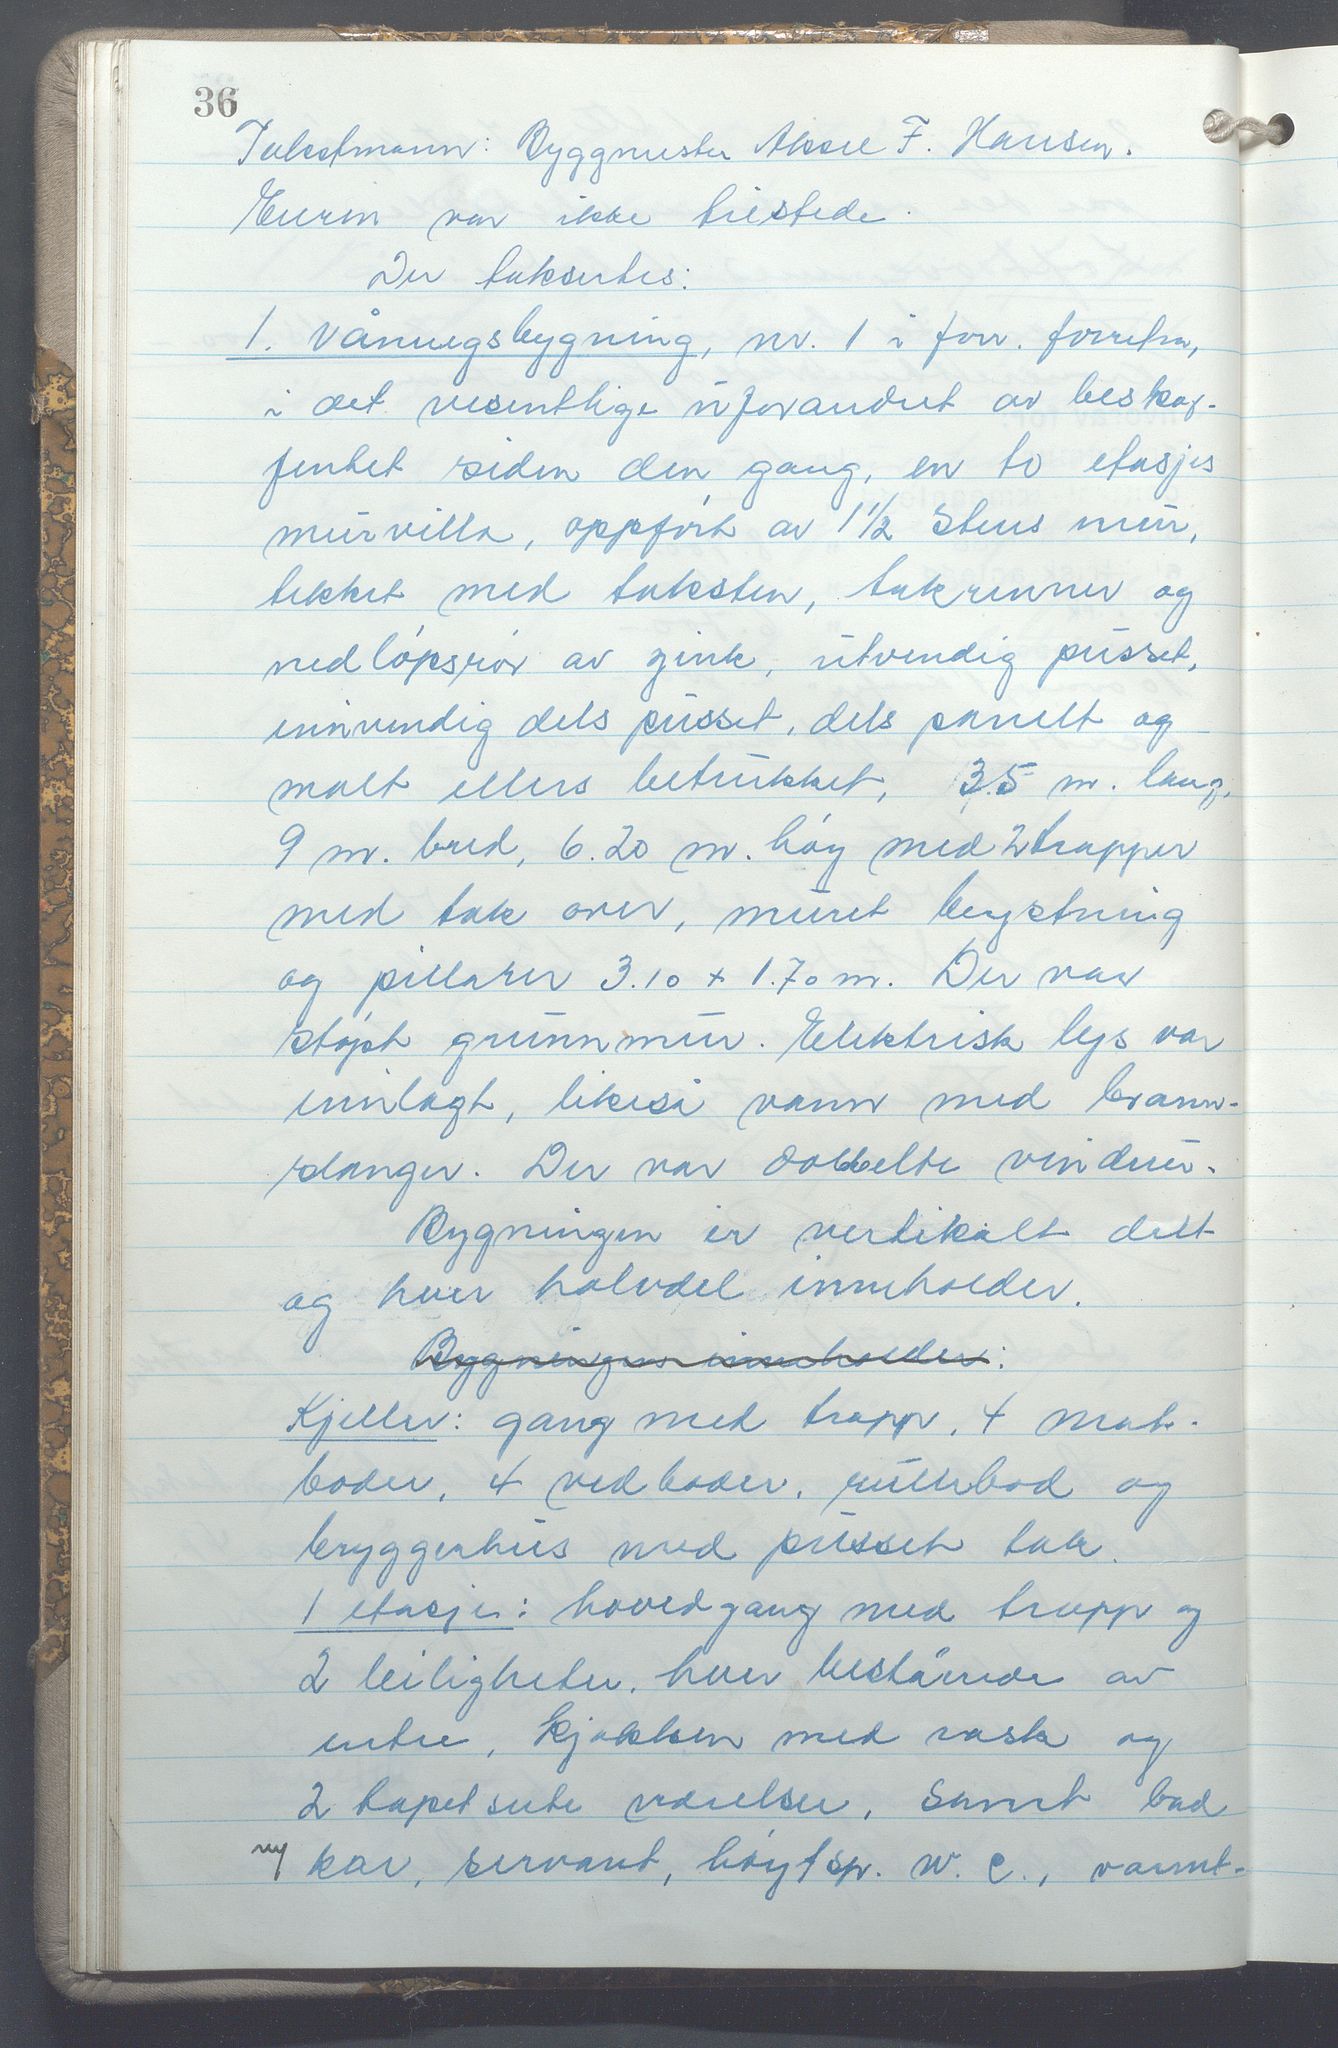 36
Takstmann: Byggmester Aksel F. Hansen.
Eieren var ikke tilstede.
Der taksertes:
1. Våningsbygning, nr. 1 i forr. forretn,
i det vesentlige uforandret av beskaf-
fenhet siden den gang, en to etasjes
murvilla, oppført av 1 1/2 stens mur,
tekket med taksten, takrenner og
nedløpsrør av zink, utvendig pusset,
innvendig dels pusset, dels panelt og
malt ellers betrukket, 35 m. lang,
9 m. bred, 6.20 m. høy med 2 trapper
med tak over, muret brystning
og pillarer 3.10 x 1.70 m. Der var
støpt grunnmur. Elektrisk lys var
innlagt, likeså vann med brann-
slanger. Der var dobbelte vinduer.
Bygningen er vertikalt delt
og hver halvdel inneholder.
Bygningen inneholder:
Kjeller: gang med trapp, 4 mat-
boder, 4 vedboder, rullebod og
bryggerhus med pusset tak.
1 etasje: hovedgang med trapp og
2 leiligheter, hver bestående av
entre, kjøkken med vask og
2 tapetserte værelser, samt bad
ny kar, servant, høytsp. W.C., varmt-